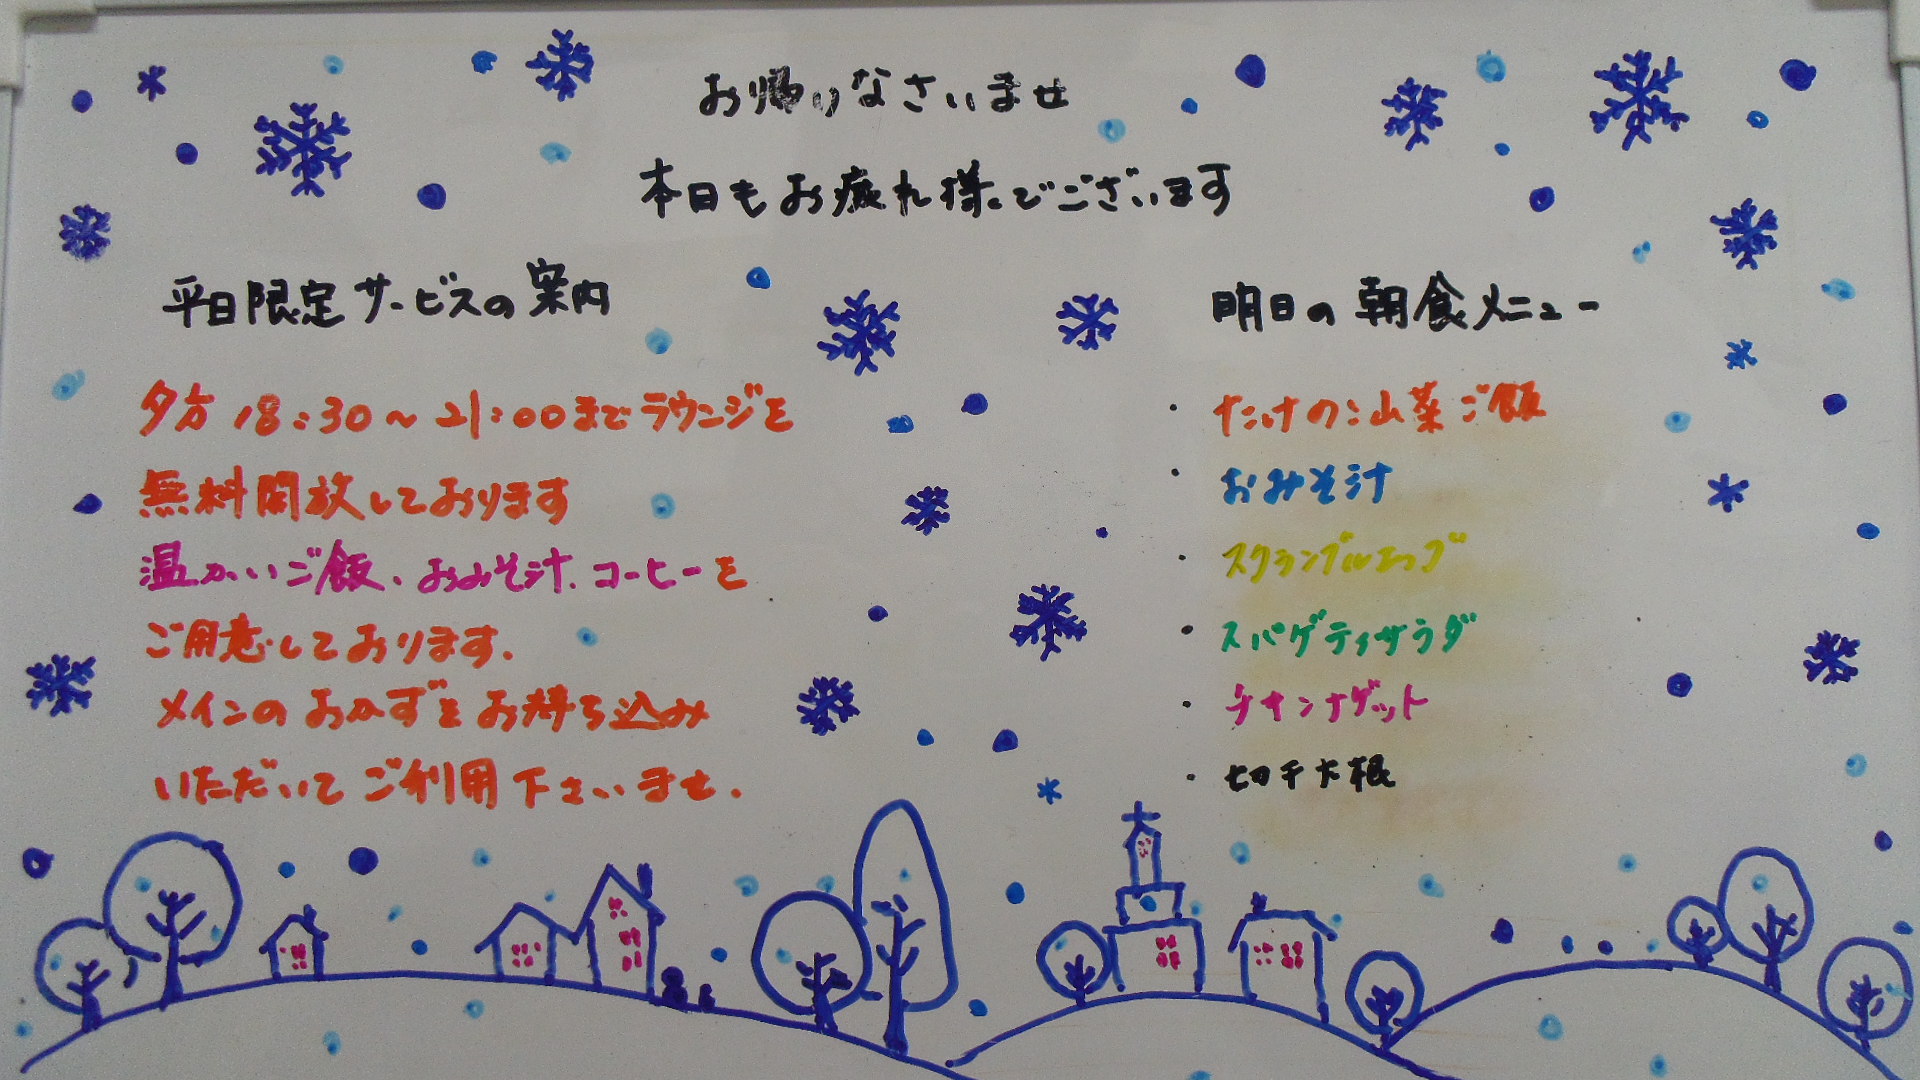 お帰りなさいませ
本日もお疲れ様でございます
平日限定サービスの案内
夕方18:30～21:00までラウンジを
無料開放しております
温かいご飯、おみそ汁、コーヒーを
ご用意しております.
メインのおかずをお持ち込み
いただいてご利用下さいませ.
明日の朝食メニュー
・たけのこ山菜ご飯
・おみそ汁
・スクランブルエッグ
・スパゲティサラダ
・チキンナゲット
・切干大根